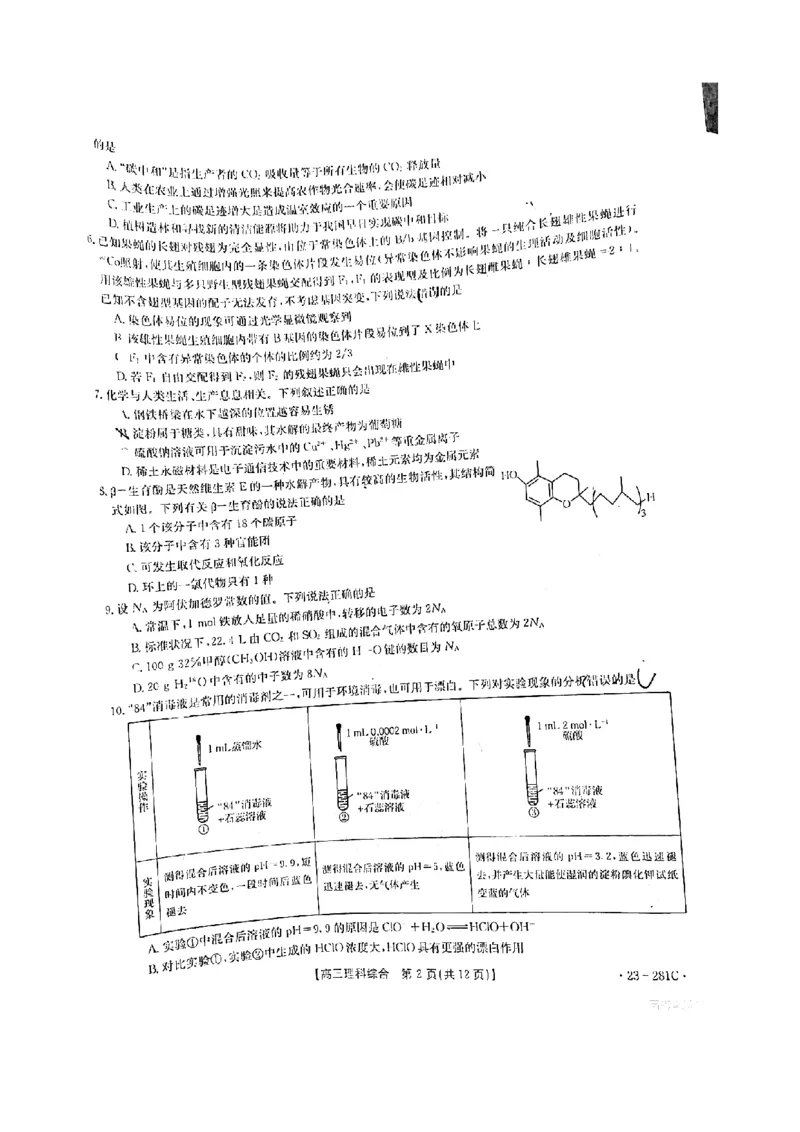 的是
A.“碳中和”是指生产者的 CO₂ 吸收量等于所有生物的 CO₂ 释放量
B.人类在农业上通过增强光照来提高农作物光合速率,会使碳足迹相对减小
C.工业生产上的碳足迹增大是造成温室效应的一个重要原因
D.植树造林和寻找新的清洁能源将助力于我国早日实现碳中和目标
6.已知果蝇的长翅对残翅为完全显性,由位于常染色体上的 B/b 基因控制。将一只纯合长翅雄性果蝇进行
⁶⁰Co照射,使其生殖细胞内的一条染色体片段发生易位(异常染色体不影响果蝇的生理活动及细胞活性)。
用该雄性果蝇与多只野生型残翅果蝇交配得到 F₁,F₁ 的表现型及比例为长翅雌果蝇:长翅雄果蝇=2:1。
已知不含翅型基因的配子无法发育,不考虑基因突变,下列说法错误的是
A.染色体易位的现象可通过光学显微镜观察到
B.该雄性果蝇生殖细胞内带有 B 基因的染色体片段易位到了 X 染色体上
C.F₁ 中含有异常染色体的个体的比例约为 2/3
D.若 F₁ 自由交配得到 F₂,则 F₂ 的残翅果蝇只会出现在雄性果蝇中
7.化学与人类生活、生产息息相关。下列叙述正确的是
A.钢铁桥梁在水下越深的位置越容易生锈
B.淀粉属于糖类,具有甜味,其水解的最终产物为葡萄糖
C.硫酸钠溶液可用于沉淀污水中的 Cu²⁺、Hg²⁺、Pb²⁺等重金属离子
D.稀土永磁材料是电子通信技术中的重要材料,稀土元素均为金属元素
8.β-生育酚是天然维生素 E 的一种水解产物,具有较高的生物活性,其结构简
式如图。下列有关 β-生育酚的说法正确的是
HO
O
H
3
A.1 个该分子中含有 18 个碳原子
B.该分子中含有 3 种官能团
C.可发生取代反应和氧化反应
D.环上的一氯代物只有 1 种
9.设 N_A 为阿伏加德罗常数的值。下列说法正确的是
A.常温下,1 mol 铁放入足量的稀硝酸中,转移的电子数为 2N_A
B.标准状况下,22.4 L 由 CO₂ 和 SO₂ 组成的混合气体中含有的氧原子总数为 2N_A
C.100 g 32%甲醇(CH₃OH)溶液中含有的 H—O 键的数目为 N_A
D.20 g H₂¹⁸O 中含有的中子数为 8N_A
10.“84”消毒液是常用的消毒剂之一,可用于环境消毒,也可用于漂白。下列对实验现象的分析错误的是
实验操作
1 mL 蒸馏水
“84”消毒液
+石蕊溶液
①
1 mL 0.0002 mol·L⁻¹
硫酸
“84”消毒液
+石蕊溶液
②
1 mL 2 mol·L⁻¹
硫酸
“84”消毒液
+石蕊溶液
③
实验现象
测得混合后溶液的 pH=9.9,短
时间内不变色,一段时间后蓝色
褪去
测得混合后溶液的 pH=5,蓝色
迅速褪去,无气体产生
测得混合后溶液的 pH=3.2,蓝色迅速褪
去,并产生大量能使湿润的淀粉碘化钾试纸
变蓝的气体
A.实验①中混合后溶液的 pH=9.9 的原因是 ClO⁻+H₂O⇌HClO+OH⁻
B.对比实验①,实验②中生成的 HClO 浓度大,HClO 具有更强的漂白作用
【高三理科综合 第 2 页(共 12 页)】
·23-281C·